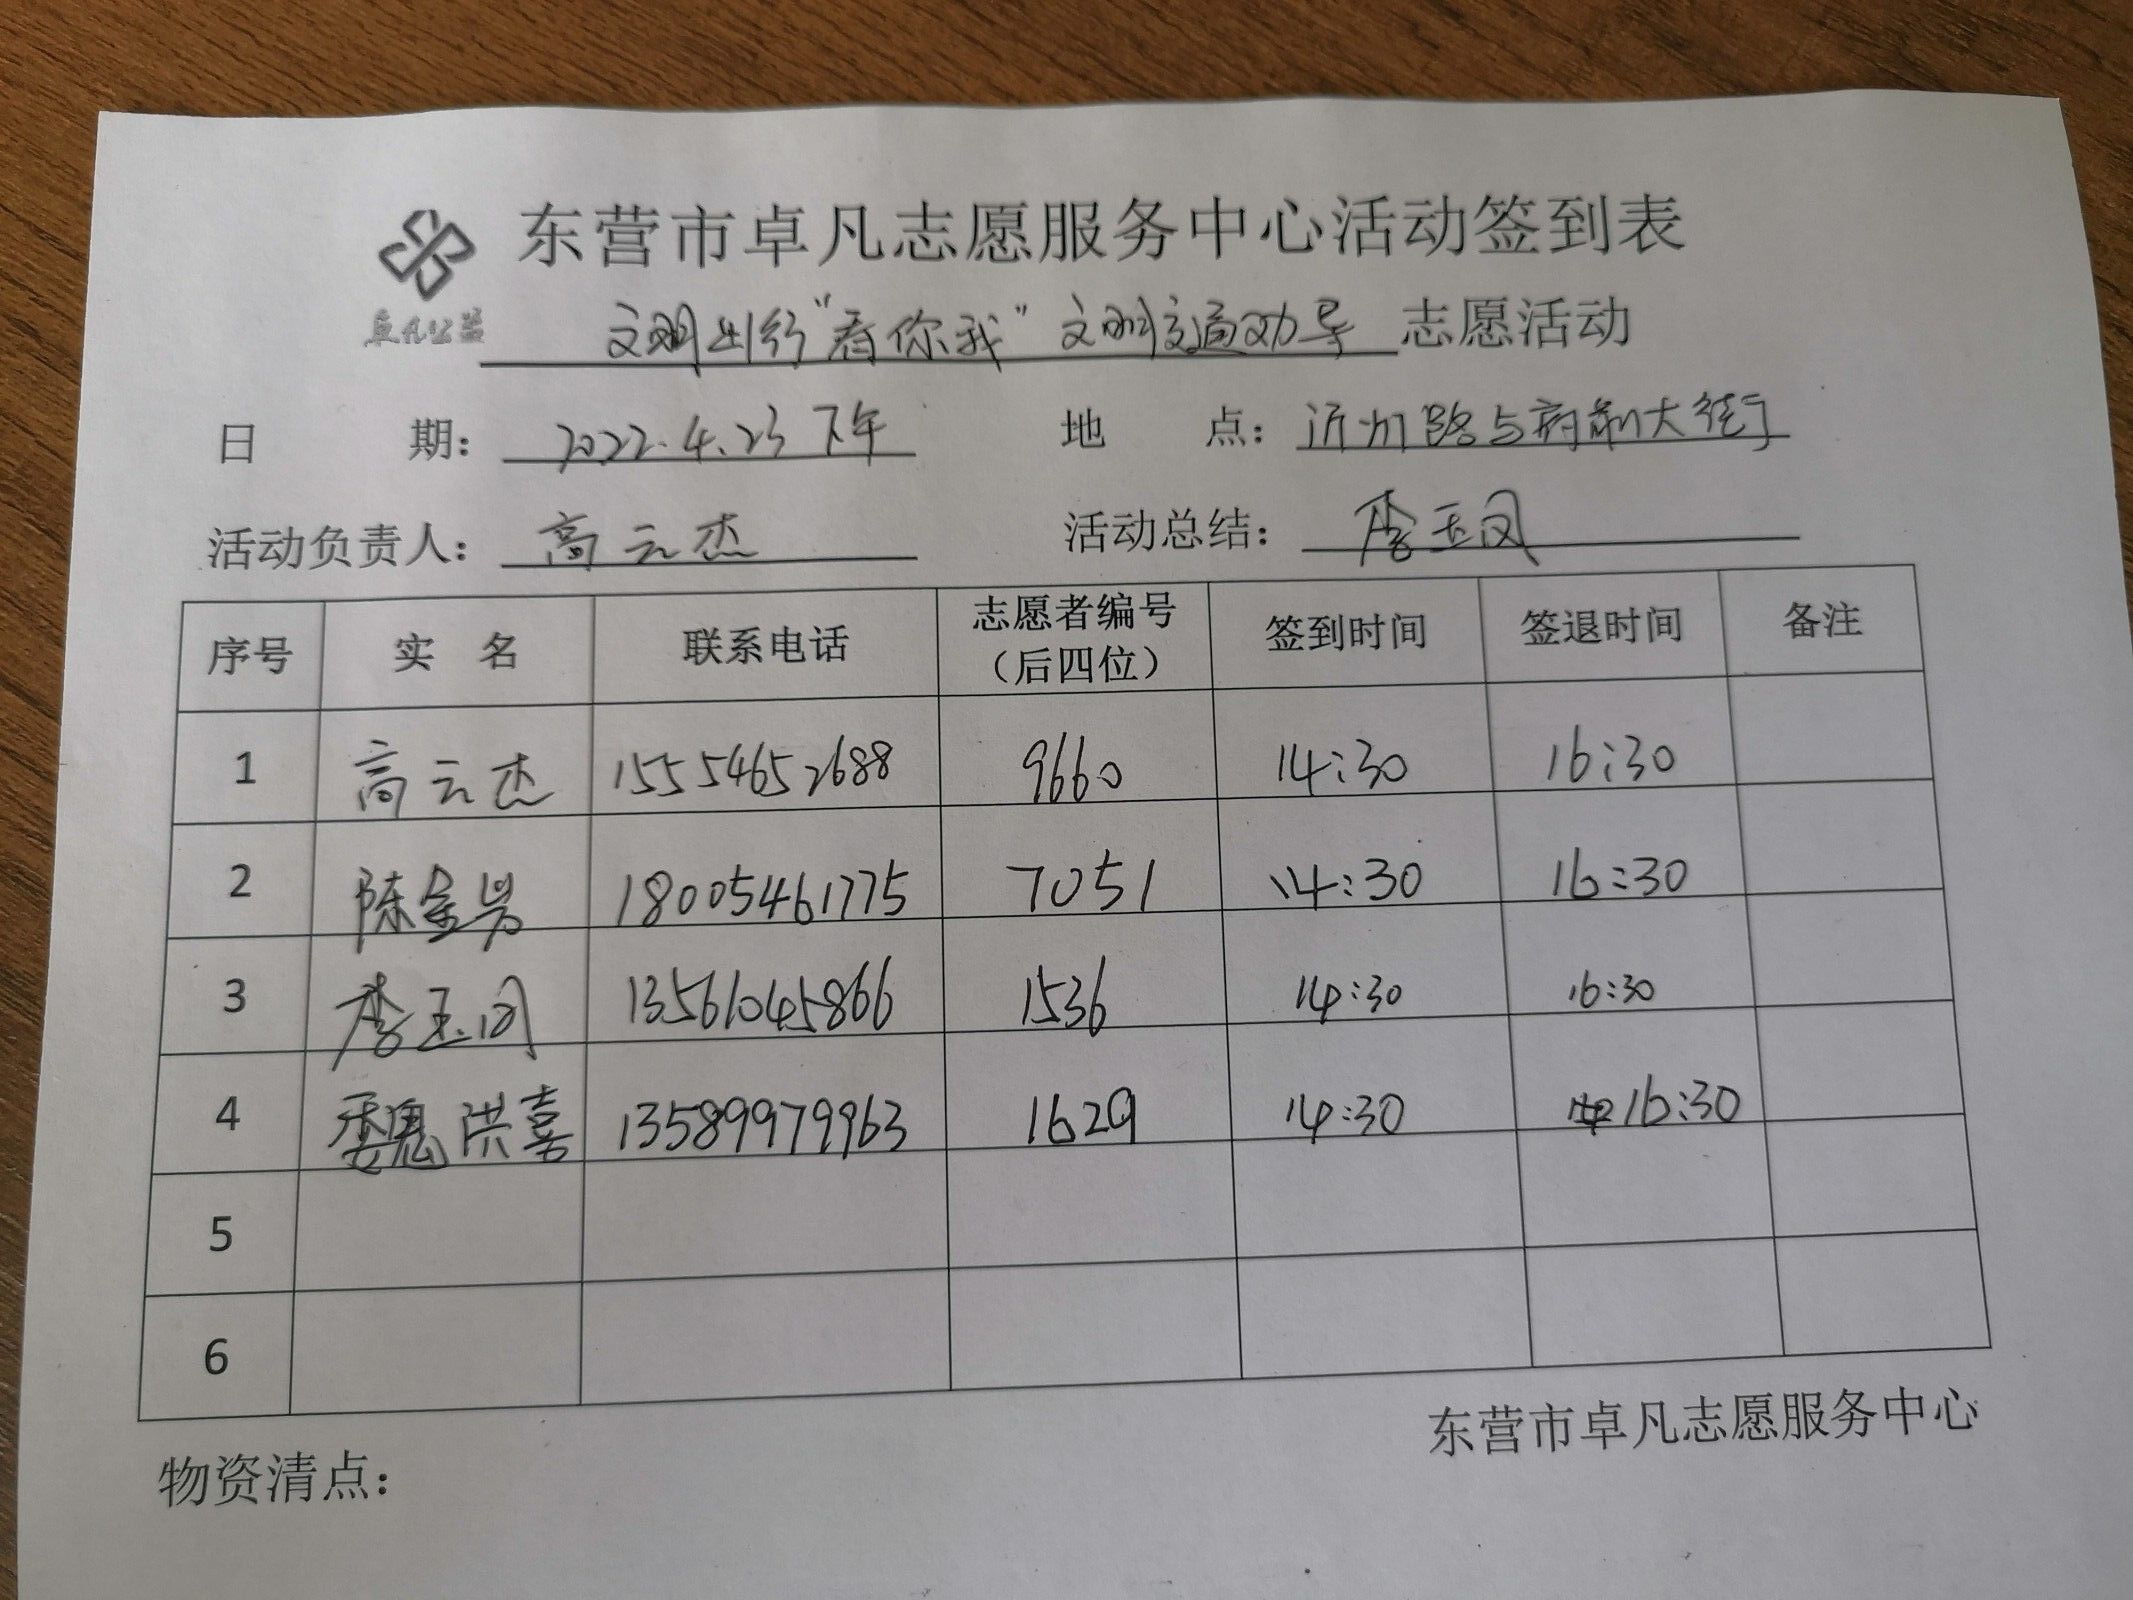 东营市卓凡志愿服务中心活动签到表
卓凡公益
文明出行“看你我”文明交通劝导 志愿活动
日 期: 2022.4.23下午 地 点: 沂州路与府前大街
活动负责人: 高云杰 活动总结: 李玉闵
序号 实 名 联系电话 志愿者编号（后四位） 签到时间 签退时间 备注
1 高云杰 15554652688 9660 14:30 16:30
2 陈 18005461775 7051 14:30 16:30
3 李玉闵 13561045866 1536 14:30 16:30
4 魏洪喜 13589979963 1629 14:30 16:30
5
6
东营市卓凡志愿服务中心
物资清点: